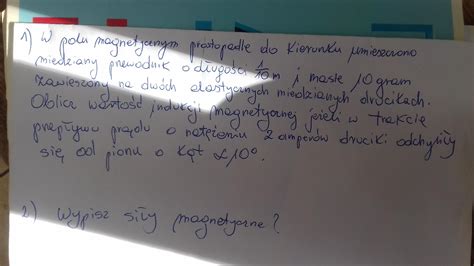 1) W polu magnetycznym prostopadle do kierunku umieszczono
miedziany przewodnik o długości 1/10 m i masie 10 gram
zawieszony na dwóch elastycznych miedzianych drócikach.
Oblicz wartość indukcji magnetycznej jeżeli w trakcie
przepływu prądu o natężeniu 2 amperów druciki odchyliły
się od pionu o kąt α 10°.
2) Wypisz siły magnetyczne?